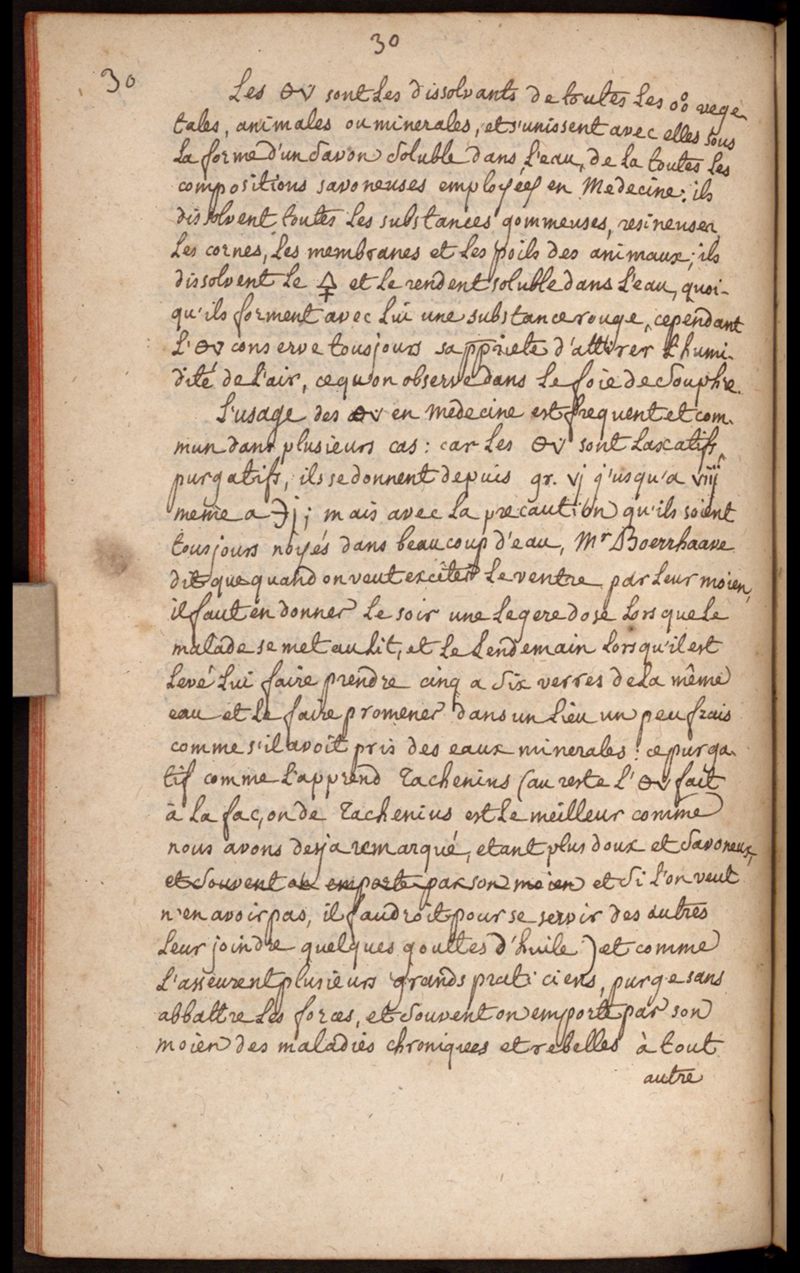 30
30
Les 🜔V sont Les dissolvants de toutes Les o°o vege
tales, animales ou minerales, et s'unissent avec elles sous
La forme d'un Savon Soluble dans L'eau, de la toutes Les
compositions savoneuses employéés en Medecine; ils
dissolvent toutes Les substances gommeuses, resineuses
Les cornes, Les membranes et Les poils des animaux; ils
dissolvent Le 🜍 et Le rendent soluble dans L'eau, quoi-
qu'ils forment avec Lui une substance rouge, cependant
L'🜔V conserve tousjours sa pprieté d'attirer L'humi-
dité de L'air, ce qu'on observe dans Le foie de Souphre.
L'usage des 🜔V en medecine est frequent et com-
mun dans plusieurs cas: car Les 🜔V sont Laxatifs,
purgatifs, ils se donnent depuis gr. vj j'usqu'a viij
meme a ℈j; mais avec La precaution qu'ils soient
tousjours noyés dans beaucoup d'eau, Mr Boerrhaave
dit que quand on veut exciter Le ventre par Leur moien,
il faut en donner Le soir une Legere dose Lors que Le
malade se met au Lit, et Le Lendemain Lorsqu'il est
Levé Lui faire prendre cinq a Six verres de La même
eau et Le faire promener dans un Lieu un peu frais
comme s'il avoit pris des eaux minerales: ce purga-
tif comme L'apprend Tachenius (au reste L'🜔V fait
à La façon de Tachenius est Le meilleur comme
nous avons desja remarqué, etant plus doux et Savoneux,
et Souvent on emporte par son moien et Si L'on veut
n'en avoir pas, il faudroit pour se servir des autres
Leur joindre quelques gouttes d'huile) et comme
L'asseurent plusieurs grands praticiens, purge sans
abbattre Les forces, et Souvent on emporte par son
moien des maladies chroniques et rebelles à tout
autre